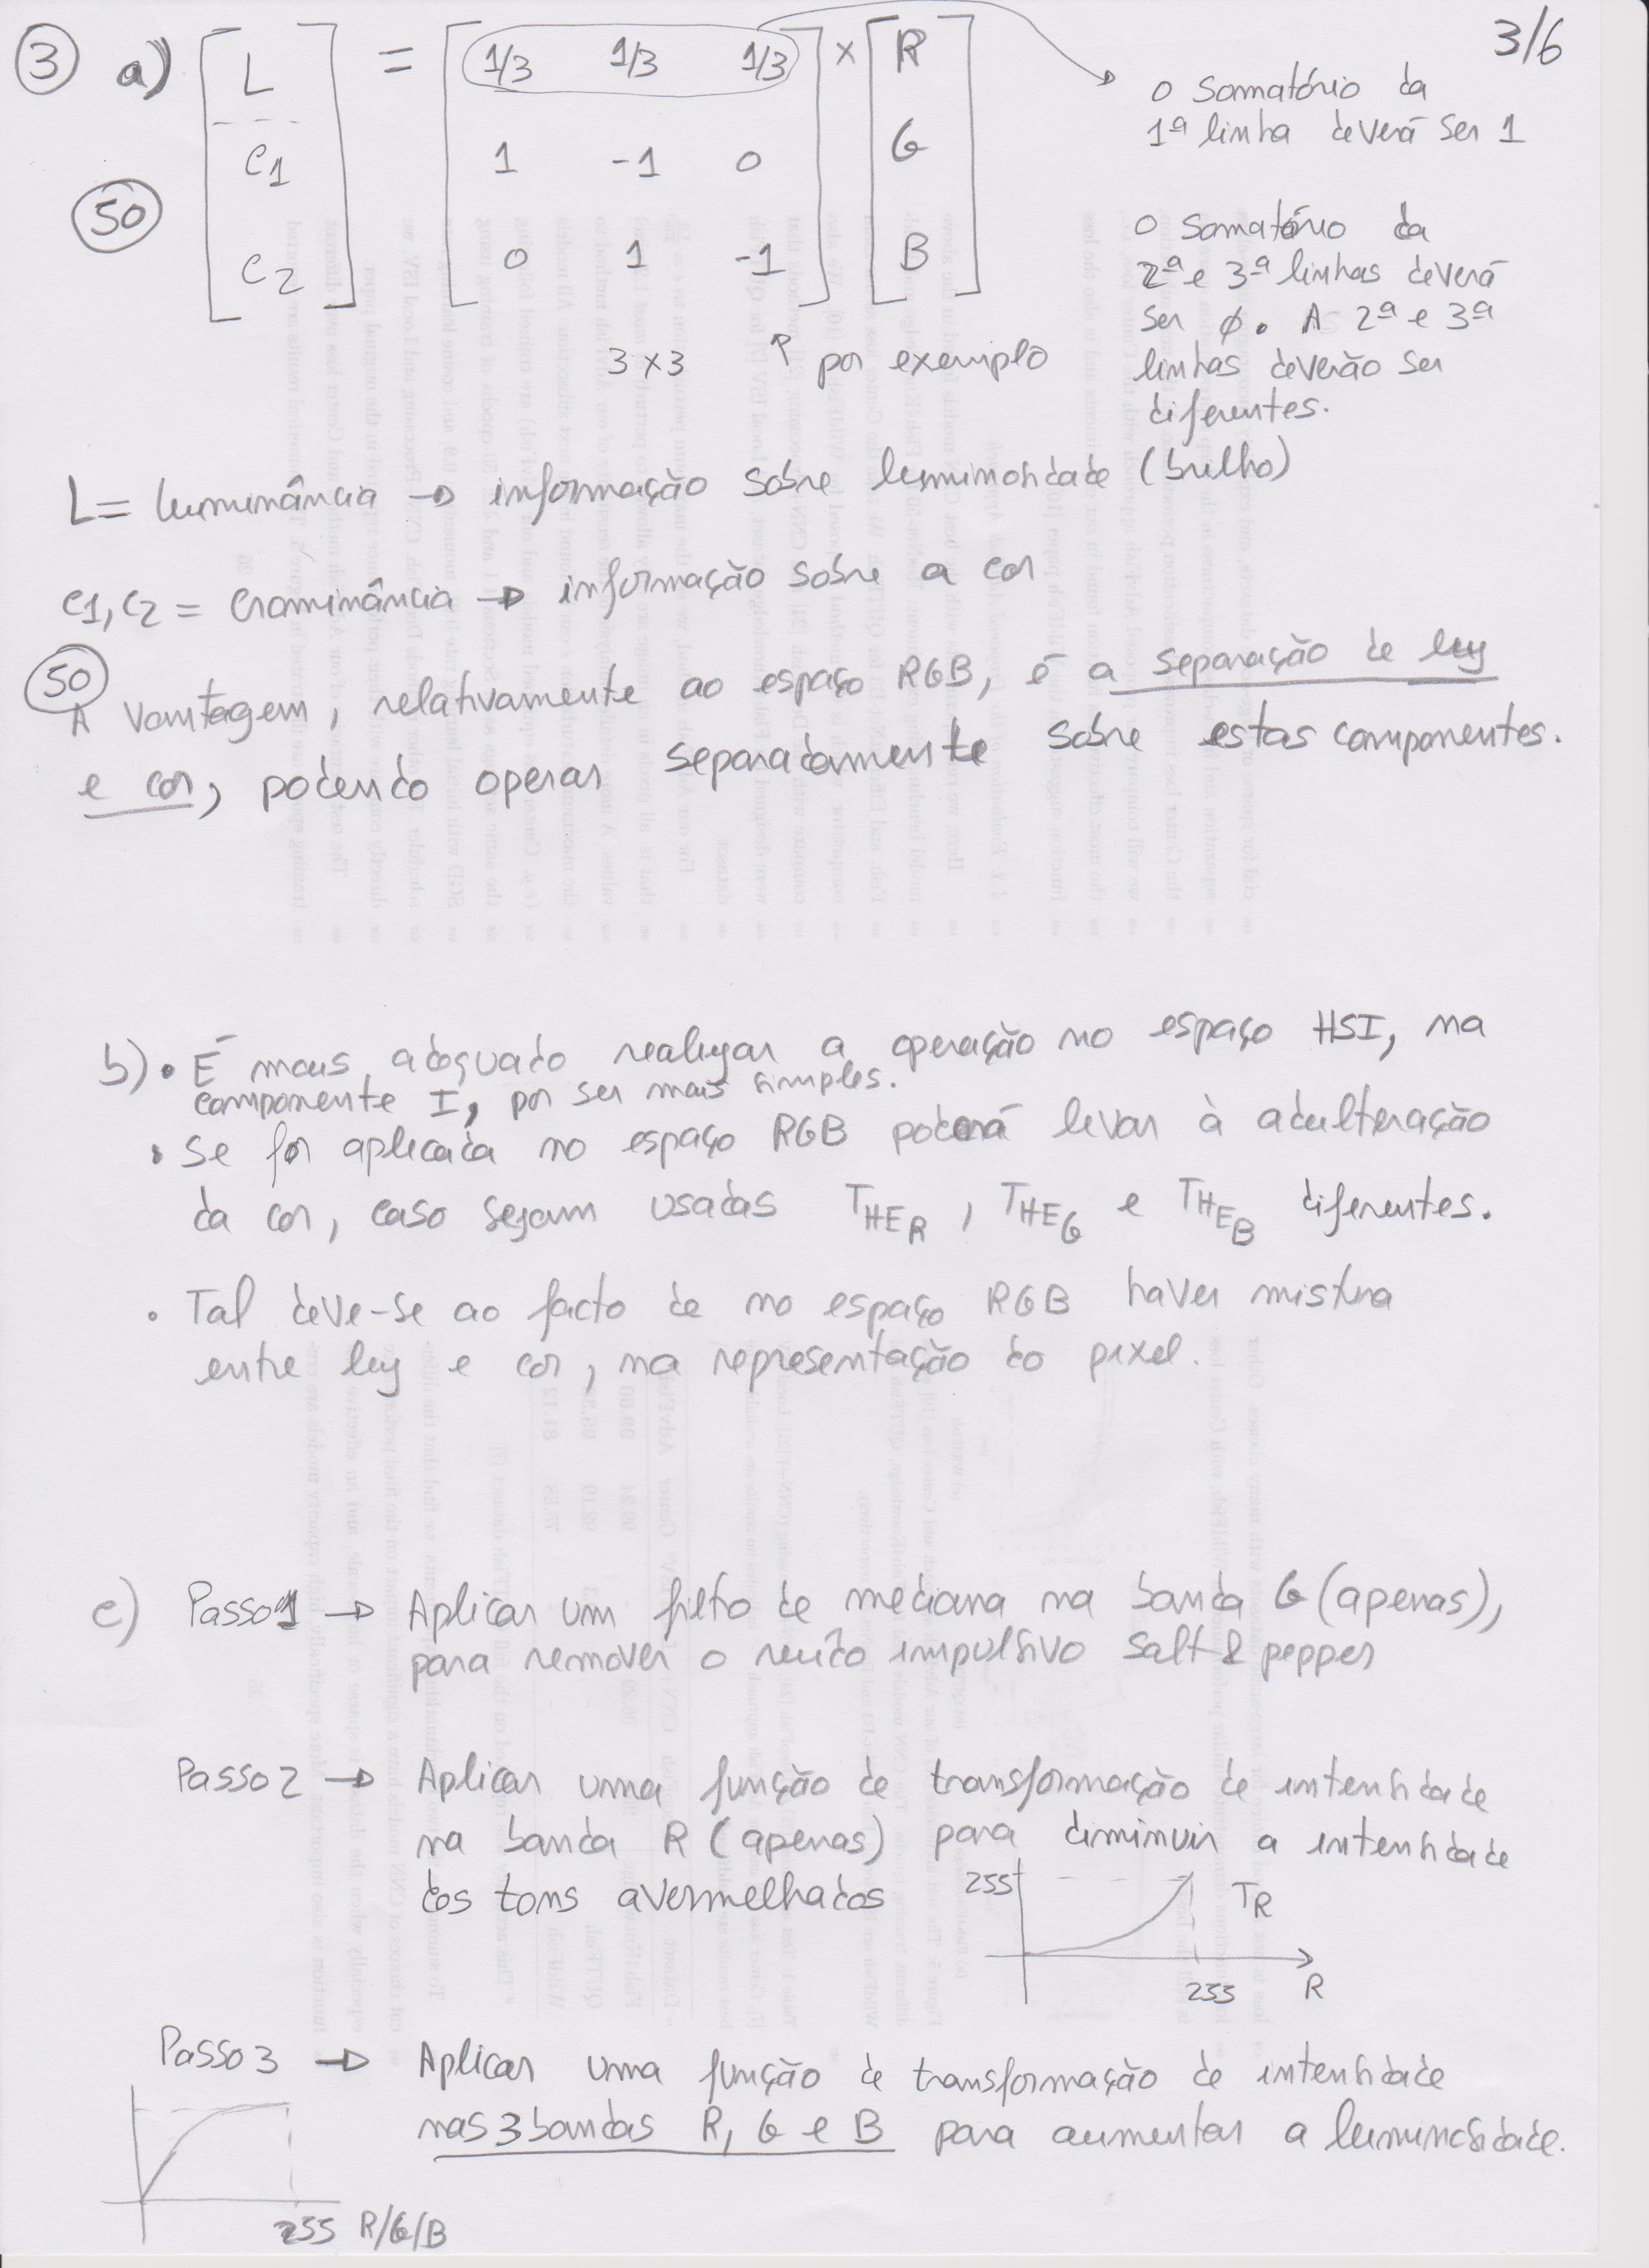 3/6
3 a) [L C1 C2] = [1/3 1/3 1/3
1 -1 0
0 1 -1] × [R G B]
50
3x3 ↑ por exemplo
o somatório da
1ª linha deverá ser 1
o somatório da
2ª e 3ª linhas deverá
ser ϕ. A 2ª e 3ª
linhas deverão ser
diferentes.
L = luminância → informação sobre luminosidade (brilho)
C1, C2 = Crominância → informação sobre a cor
50
A vantagem, relativamente ao espaço RGB, é a separação de luz
e cor, podendo operar separadamente sobre estas componentes.
b) • É mais adequado realizar a operação no espaço HSI, na
componente I, por ser mais simples.
• Se for aplicada no espaço RGB poderá levar à adulteração
da cor, caso sejam usadas THER, THEG e THEB diferentes.
• Tal deve-se ao facto de no espaço RGB haver mistura
entre luz e cor, na representação do pixel.
c) Passo 1 → Aplicar um filtro de mediana na banda G (apenas),
para remover o ruído impulsivo Salt & pepper
Passo 2 → Aplicar uma função de transformação de intensidade
na banda R (apenas) para diminuir a intensidade
dos tons avermelhados
255 TR
255 R
Passo 3 → Aplicar uma função de transformação de intensidade
nas 3 bandas R, G e B para aumentar a luminosidade.
255 R/G/B